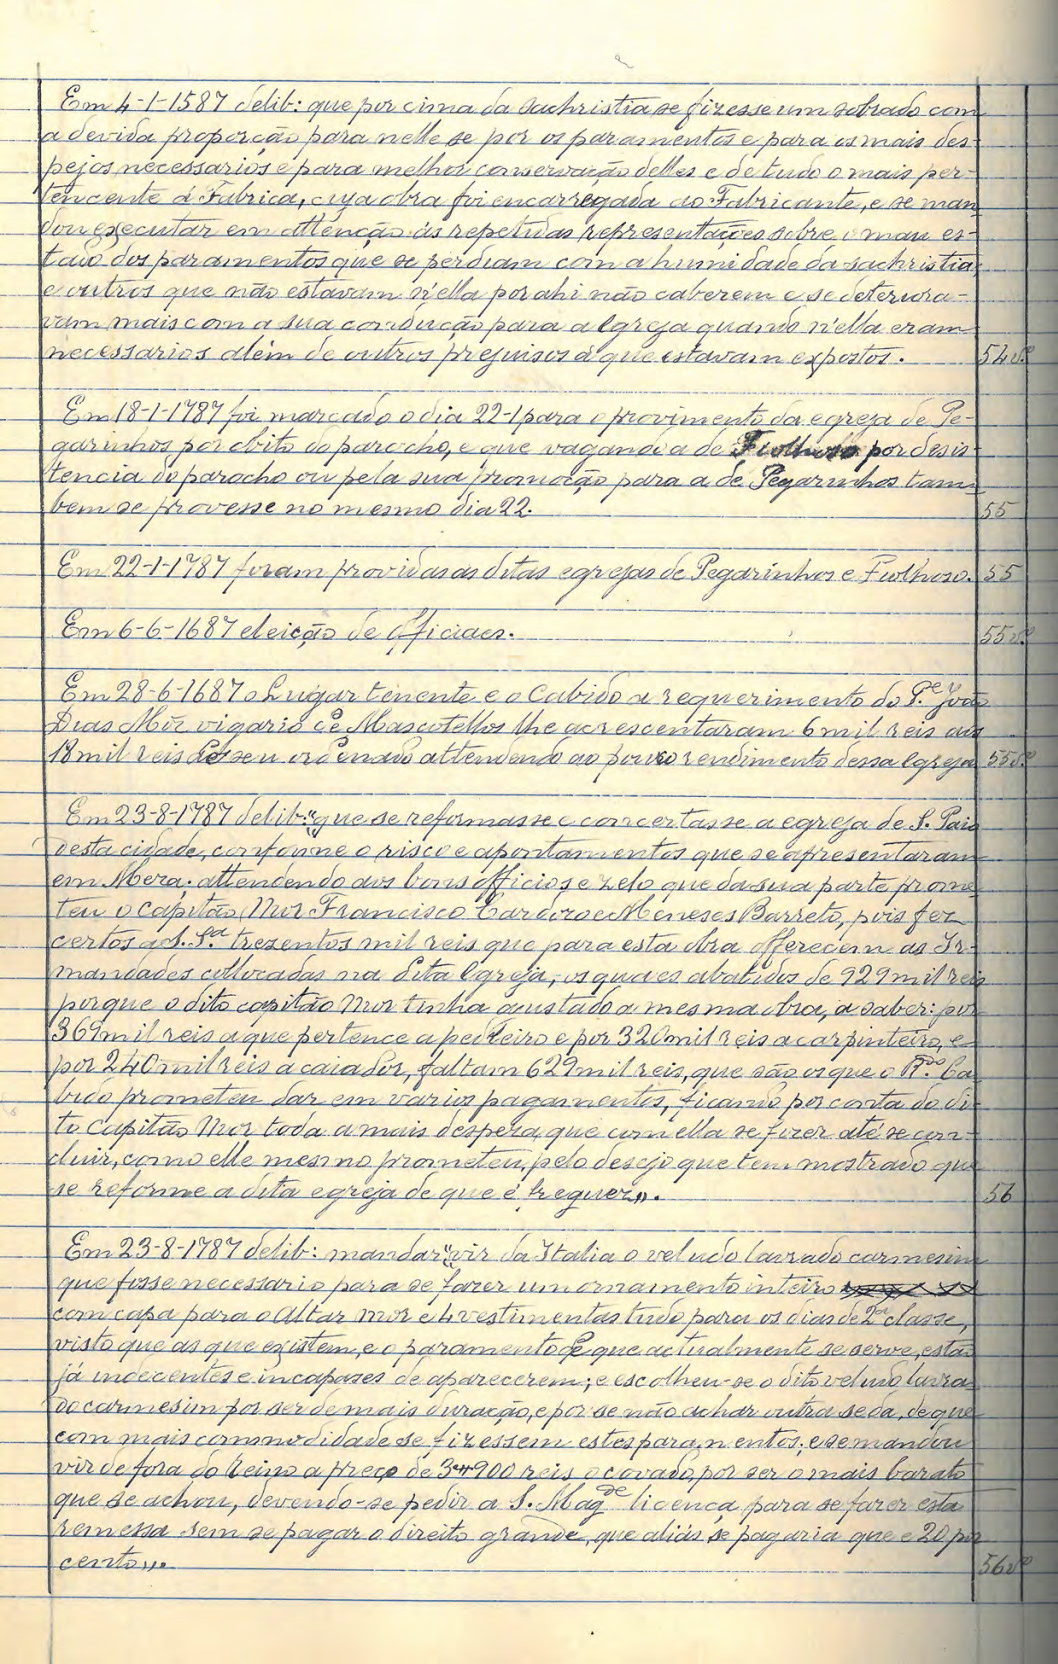 Em 4-1-1587 delib: que por cima da sachristia se fizesse um sobrado com
a devida proporção para nelle se por os paramentos e para os mais des-
pejos necessarios e para melhor conservação delles e de tudo o mais per-
tencente á Fabrica, cuja obra foi encarregada ao Fabricante, e se man
dou executar em attenção ás repetidas representações sobre o mau es-
tado dos paramentos que se perdiam com a humidade da sachristia
e outros que não estavam n'ella por ahi não caberem e se deteriora-
vam mais com a sua conducção para a Igreja quando n'ella eram
necessarios além de outros prejuisos á que estavam expostos. 54 vº
Em 18-1-1787 foi marcado o dia 22-1 para o provimento da egreja de Pe-
garinhos por obito do parocho, e que vagando a de Fiolhoso por desis
tencia do parocho ou pela sua promoção para a de Pegarinhos tam-
bem se provesse no mesmo dia 22. 55
Em 22-1-1787 foram providas as ditas egrejas de Pegarinhos e Fiolhoso. 55
Em 6-6-1687 eleição de officiaes. 55 vº
Em 28-6-1687 o Lugar tenente e o Cabido a requerimento do Pe João
Dias Mór vigario de Mascotellos lhe acrescentaram 6 mil reis aos
18 mil reis do seu ordenado attendendo ao pouco rendimento dessa Igreja 55 vº
Em 23-8-1787 delib: "que se reformasse e concertasse a egreja de S. Paio
desta cidade, conforme o risco e apontamentos que se apresentaram
em Meza; attendendo aos bons officios e zelo que da sua parte prome
teu o Capitão Mor Francisco Cardoso e Meneses Barreto, pois fez
certos a S. Sª trezentos mil reis que para esta obra offerecem as Ir-
mandades collocadas na dita Igreja, os quaes abatidos de 929 mil reis
porque o dito capitão Mor tinha ajustado a mesma obra, a saber: por
369 mil reis a que pertence a pedreiro e por 320 mil reis a carpinteiro, e
por 240 mil reis a caiador, faltam 629 mil reis, que são os que o Rdo Ca
bido prometeu dar em varios pagamentos, ficando por conta do di-
to Capitão Mor toda a mais despeza que com ella se fizer até se con-
cluir, como elle mesmo prometeu, pelo desejo que tem mostrado que
se reforme a dita egreja de que é freguez". 56
Em 23-8-1787 delib: mandar "vir da Italia o veludo lavrado carmesim
que fosse necessario para se fazer um ornamento inteiro
com capa para o Altar mor e 4 vestimentas tudo para os dias de 2ª classe,
visto que as que existem, e o paramento de que actualmente se serve, estão
já indecentes e incapazes de aparecerem; e escolheu-se o dito veludo lavra
do carmesim por ser de mais duração, e por se não achar outra seda, de que
com mais commodidade se fizessem estes paramentos; e se mandou
vir de fora do reino a preço de 3$900 reis o covado, por ser o mais barato
que se achou, devendo-se pedir a S. Magde licença para se fazer esta
remessa sem se pagar o direito grande, que aliás se pagaria que e 20 por
cento". 56 vº